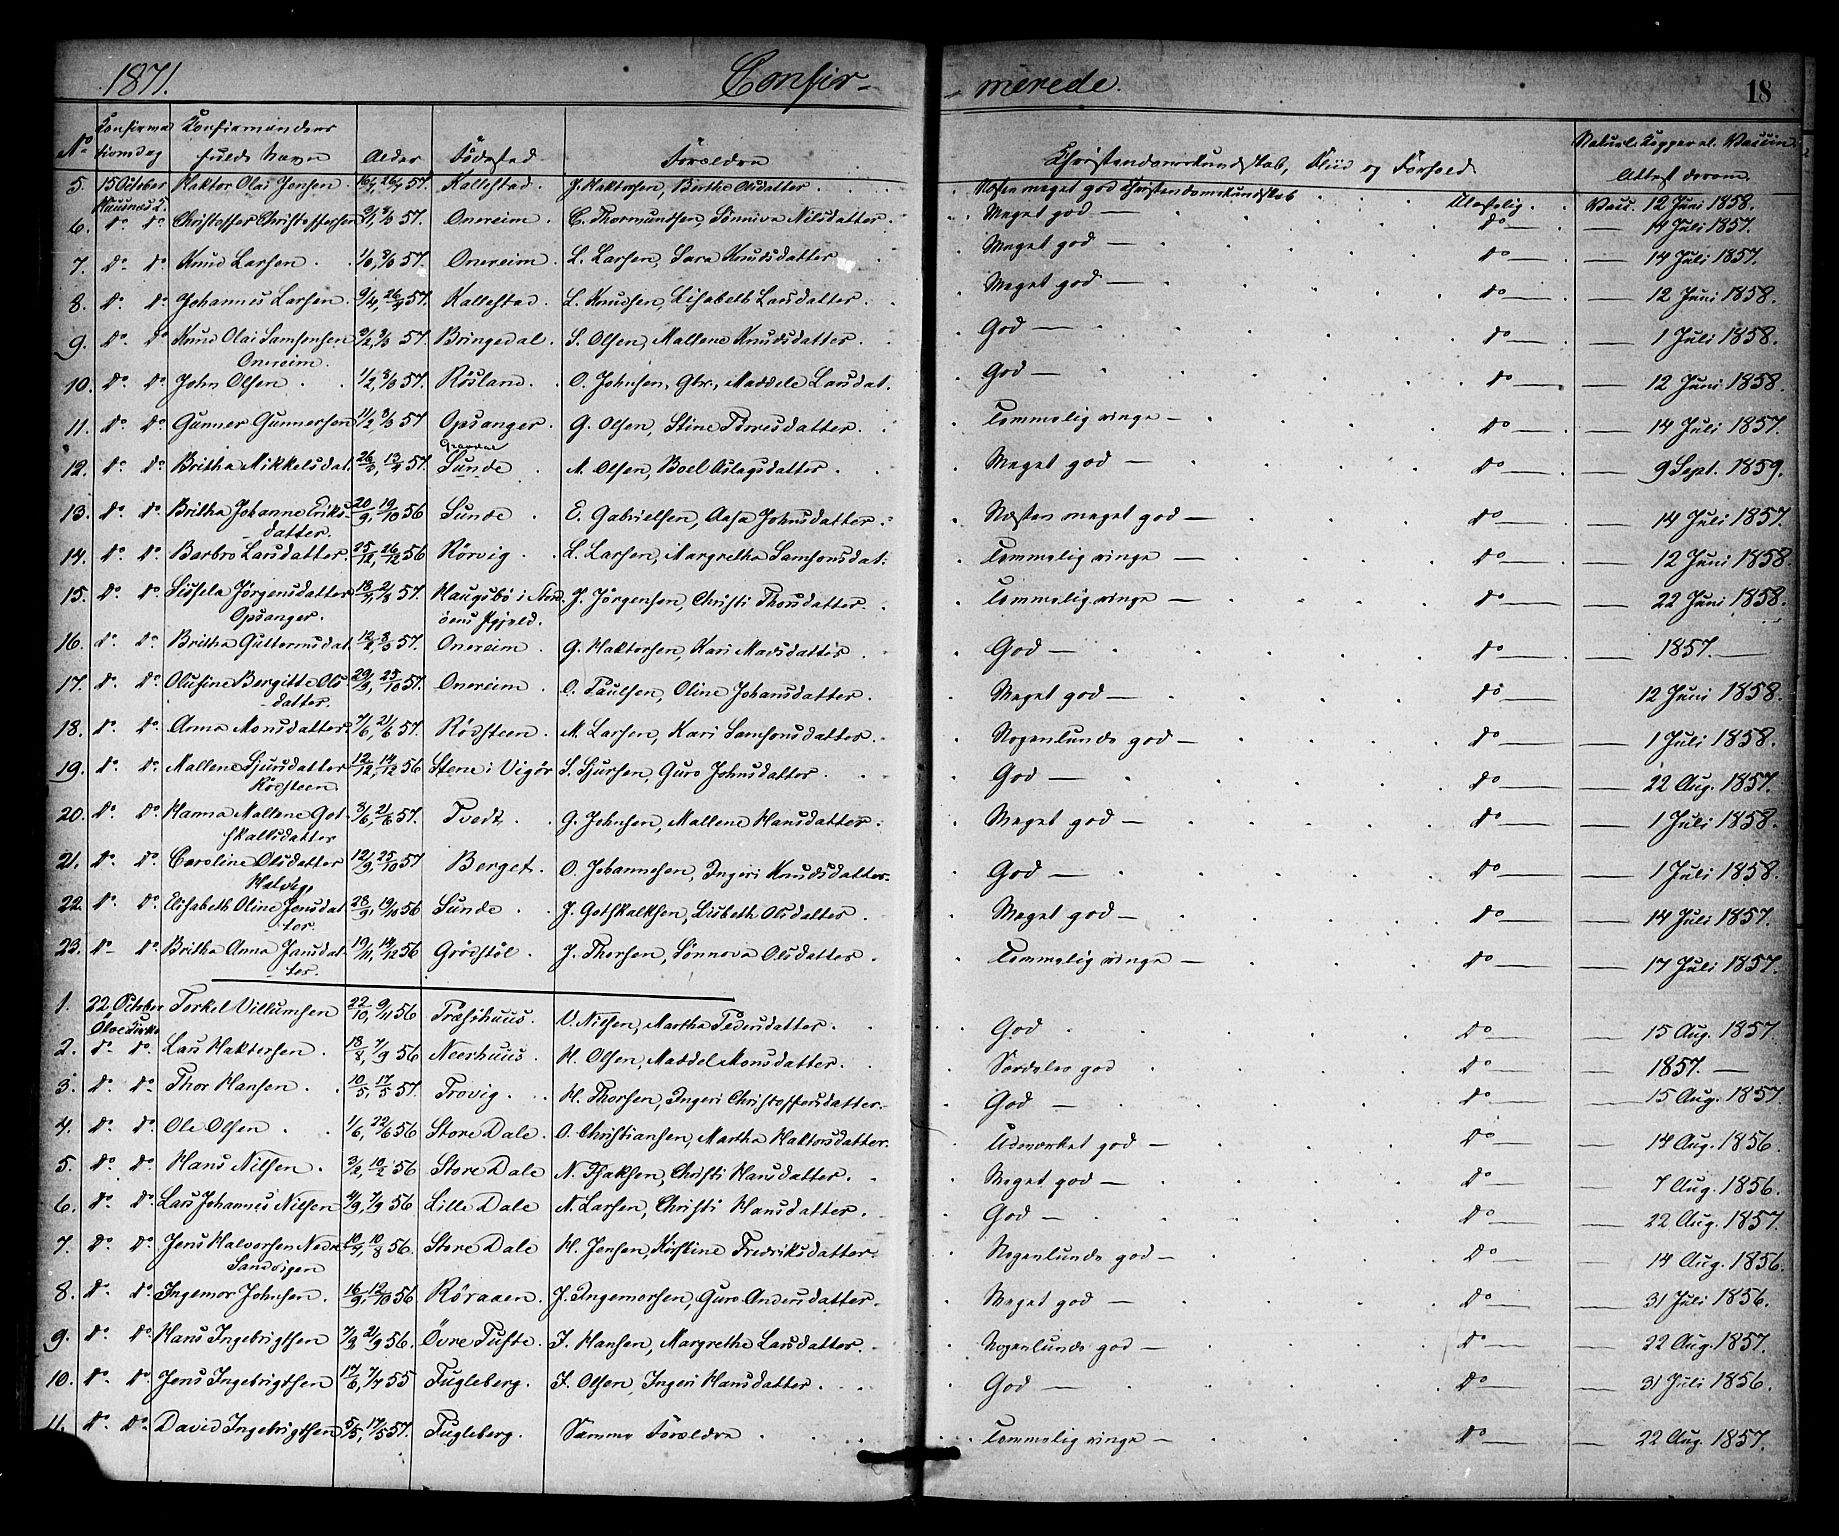 1871. Confir- merede. 18
No Konfirma Konfirmandens Alder Födested Forældre Christendomskundskab, Flid og Forhold Naturl. Kopper el. Vaccin.
tionsdag fulde Navn Attest derom.
5. 15 October Haktor Olai Jensen. 57. Kallestad. J. Haktorsen, Birthe Olsdatter. Næsten meget god Christendomskundskab Ulastelig. Vacc. 12 Juni 1858.
6. do do Christoffer Christoffersen 57. Onereim. C. Thormundsen, Sönniva Nilsdatter. Meget god — do — 14 Juli 1857.
7. do do Knud Larsen. 57. Onereim. L. Larsen, Sara Knudsdatter Meget god — do — 14 Juli 1857.
8. do do Johannes Larsen. 9/4, 26/4 57. Kallestad. L. Knudsen, Lisabeth Larsdatter. Meget god — do — 12 Juni 1858.
9. do do Knud Olai Samsonsen 57. Bringedal. S. Olsen, Mallene Knudsdatter. God — do — 1 Juli 1858.
Onereim.
10. do do John Olsen. 1/2, 8/3 57. Rösland. O. Johnsen, Gbr., Maddele Larsdat. God — do — 12 Juni 1858.
11. do do Gunner Gunnersen 11/2, 8/3 57 Opsanger. G. Olsen, Stine Torresdatter. Temmelig ringe — do — 14 Juli 1857.
12. do do Britha Mikkelsdat. 26/3, 13/4 57. Sunde M. Olsen, Boel Aslagsdatter. Meget god — do — 9 Sept. 1859.
13. do do Britha Johanne Eriks- 20/9, 19/10 56 Sunde. E. Gabrielsen, Aasa Johnsdatter. Næsten meget god — do — 14 Juli 1857.
datter.
14. do do Barbro Larsdatter. 25/12, 26/12 56 Rörvig. L. Larsen, Margretha Samsonsdat. Temmelig ringe — do — 12 Juni 1858
15. do do Sissela Jörgensdatter 57. Haugsbö i J. Jörgensen, Christi Thorsdatter. Temmelig ringe — do — 22 Juni 1858.
Opsanger.
16. do do Britha Guttormsdat. 12/2, 8/3 57. Onereim. G. Haktorsen, Kari Madsdatter. God — do — 1857. —
17. do do Olufine Bergitte Ols 29/9, 25/10 57. Onereim. O. Paulsen, Oline Johansdatter. Meget god — do — 12 Juni 1858.
datter.
18. do do Anna Monsdatter 7/6, 21/6 57. Rödsteen. M. Larsen, Kari Samsonsdatter. Nogenlunde god — do — 1 Juli 1858.
19. do do Mallene Sjursdatter 12/12, 14/12 56 Stene i Vigör S. Sjursen, Guro Johnsdatter. God — do — 22 Aug. 1857.
Rödsteen
20. do do Hanna Mallene Got 3/6, 21/6 57. Tvedt. G. Johnsen, Mallene Hansdatter. Meget god — do — 1 Juli 1858.
skalksdatter
21. do do Caroline Olsdatter 12/9, 25/10 57 Berget. O. Johannesen, Ingeri Knudsdatter. God — do — 1 Juli 1858.
22. do do Elisabeth Oline Jensdat 28/9, 19/10 56 Sunde. J. Gotskalksen, Lisbeth Olsdatter. Meget god — do — 14 Juli 1857.
ter.
23. do do Britha Anna Jansdat 19/11, 14/12 56 Grödstöl. J. Thorsen, Sönnova Olsdatter. Temmelig ringe — do — 17 Juli 1857.
ter.
1. 22. October Torkel Villumsen 22/10, 9/11 56 Træshuus. V. Nilsen, Martha Pedersdatter. God do — 15 Aug. 1857.
Ölve Kirke
2. do do Lars Haktorsen. 18/8, 7/9 56 Neerhuus. H. Olsen, Maddel Monsdatter. Særdeles god do — 1857. —
3. do do Thor Hansen. 10/5, 17/5 57. Trovig. H. Thorsen, Ingeri Christoffersdatter. God — do — 15 Aug. 1857.
4. do do Ole Olsen 1/6, 22/6 56 Store Dale. O. Christiansen, Martha Haktorsdatter. Udmærket god — do — 14 Aug. 1856.
5. do do Hans Nilsen. 3/2, 10/2 56 Store Dale N. Isaksen, Christi Hansdatter. Meget god — do — 7 Aug. 1856.
6. do do Lars Johannes Nilsen 7/9 56 Lille Dale N. Larsen, Christi Hansdatter. God — do — 22 Aug. 1857.
7. do do Jens Halvorsen Nedre 10/8 56. Store Dale H. Jensen, Kirstine Fredriksdatter. Nogenlunde god — do — 14 Aug. 1856.
Sandvigen
8. do do Ingemor Johnsen. 16/9, 12/10 56 Röraaen. J. Ingemorsen, Guro Andersdatter. Meget god — do — 31 Juli 1856.
9. do do Hans Ingebrigtsen 21/9 56. Övre Tufte. I. Hansen, Margrethe Larsdatter. Nogenlunde god — do — 22 Aug. 1857.
10. do do Jens Ingebrigtsen 55 Fugleberg. I. Olsen, Ingeri Hansdatter. God — do — 31 Juli 1856.
11. do do David Ingebrigtsen 5/5, 17/5 57. Fugleberg. Samme Forældre Temmelig ringe — do — 22 Aug. 1857.